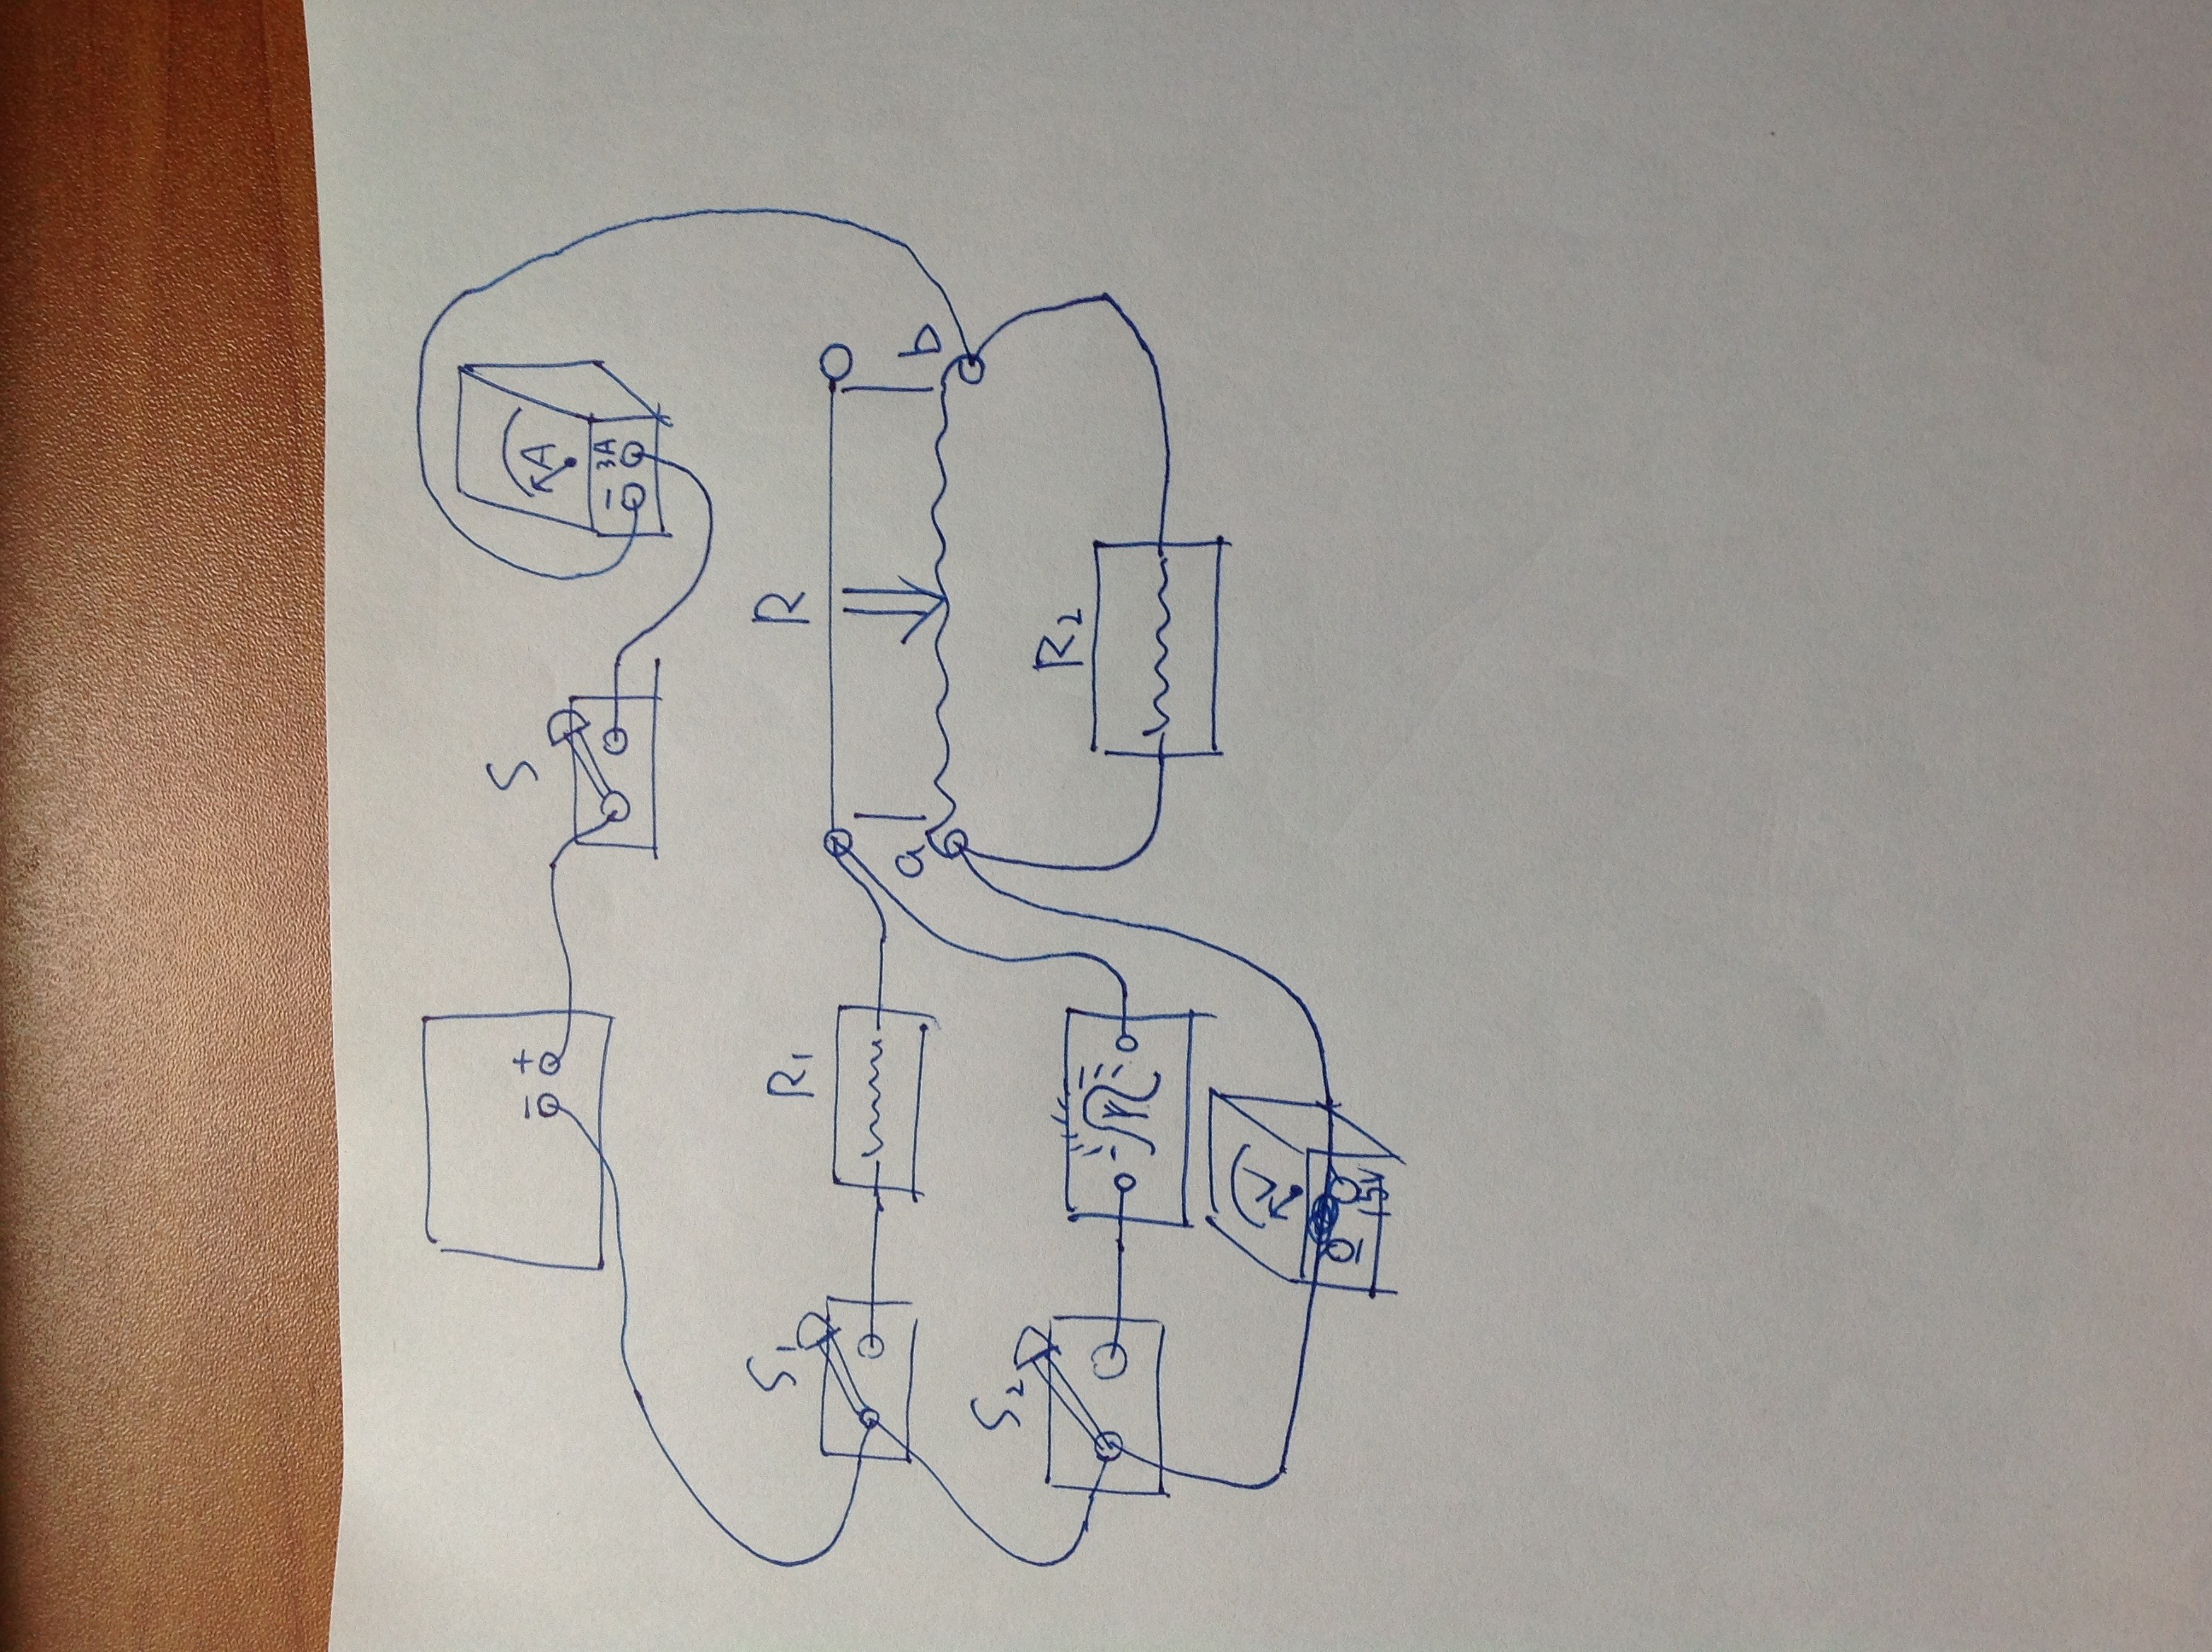 - +
S
A
- 3A
S₁
R₁
R
a
b
S₂
R₂
V
-
15V